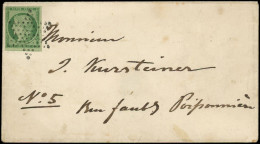 Monsieur
J. Kursteiner
N° 5 Rue faub.g Poissonnière